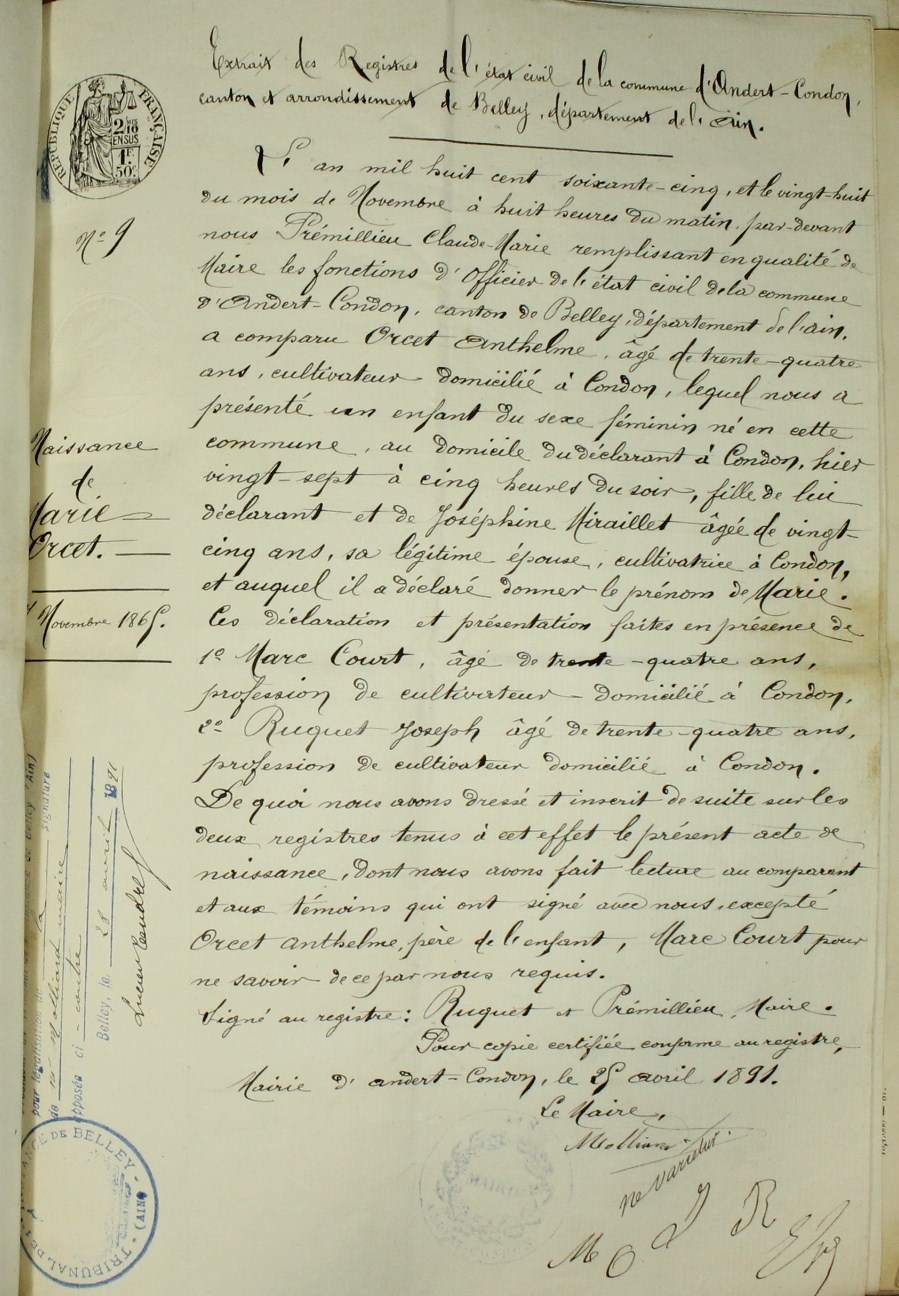 Extrait des Registres de l'état civil de la commune d'Andert-Condon,
canton et arrondissement de Belley, département de l'Ain.
RÉPUBLIQUE FRANÇAISE
2/10 EN SUS
1F 50c
L'an mil huit cent soixante-cinq, et le vingt-huit
du mois de Novembre à huit heures du matin, par-devant
nous Prémillieu Claude-Marie remplissant en qualité de
Maire les fonctions d'Officier de l'état civil de la commune
d'Andert-Condon, canton de Belley, département de l'ain,
a comparu Orcet Anthelme, âgé de trente-quatre
ans, cultivateur domicilié à Condon, lequel nous a
présenté un enfant du sexe féminin né en cette
commune, au domicile du déclarant à Condon, hier
vingt-sept à cinq heures du soir, fille de lui
déclarant et de Joséphine Miraillet âgée de vingt-
cinq ans, sa légitime épouse, cultivatrice à Condon,
et auquel il a déclaré donner le prénom de Marie.
Ces déclaration et présentation faites en présence de
1º Marc Court, âgé de trente-quatre ans,
profession de cultivateur domicilié à Condon,
2º Ruquet Joseph âgé de trente-quatre ans,
profession de cultivateur domicilié à Condon.
De quoi nous avons dressé et inscrit de suite sur les
deux registres tenus à cet effet le présent acte de
naissance, dont nous avons fait lecture au comparant
et aux témoins qui ont signé avec nous, excepté
Orcet Anthelme, père de l'enfant, Marc Court pour
ne savoir de ce par nous requis.
Signé au registre: Ruquet et Prémillieu, Maire.
Pour copie certifiée conforme au registre,
Mairie d'andert-Condon, le 25 avril 1891.
Le Maire,
Molliard
ne varietur
M O
R
Nº 9
Naissance
de
Marie
Orcet.
Novembre 1865.
pour légalisation de la signature
de M Molliard maire
apposée ci-contre
Belley, le 28 avril 1891
TRIBUNAL DE BELLEY (AIN)
MAIRIE